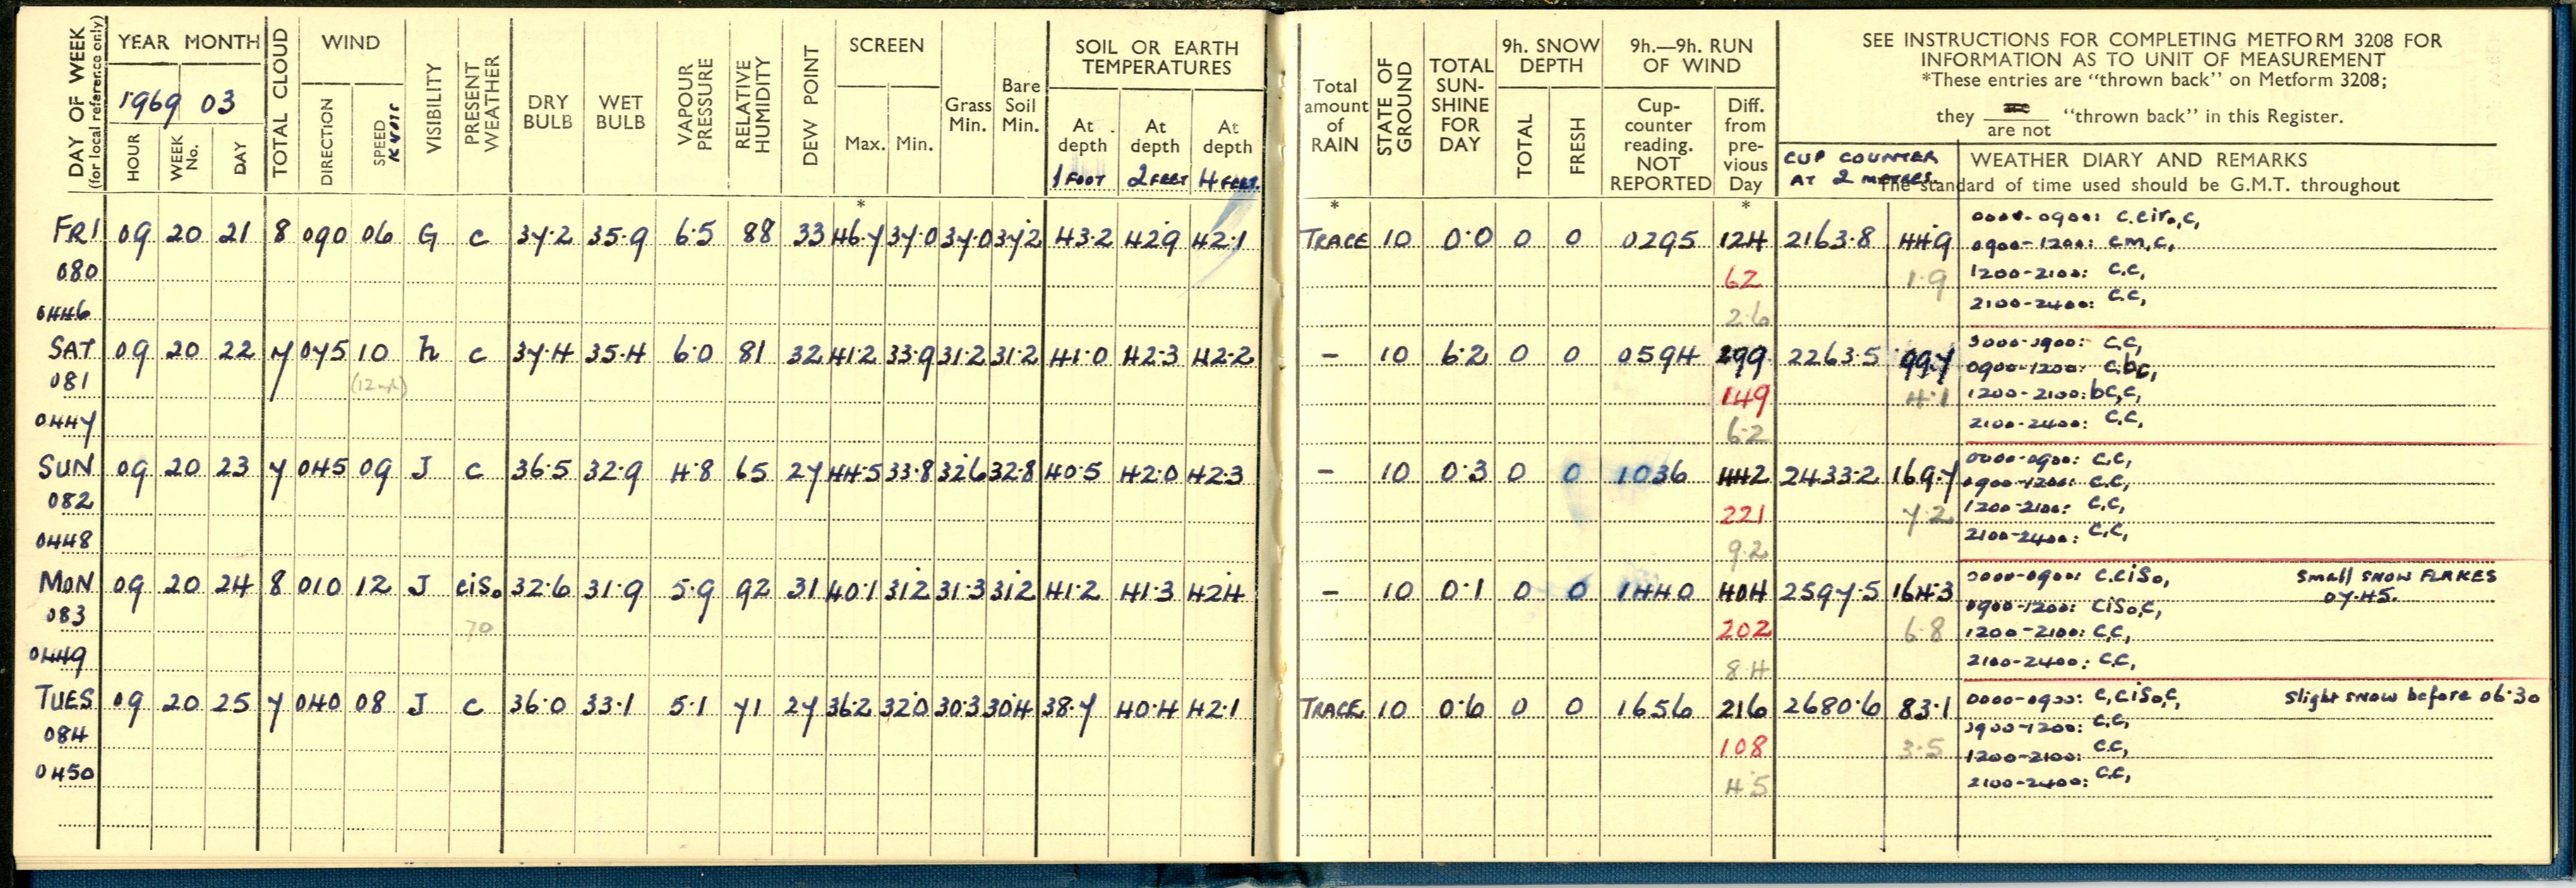 DAY OF WEEK (for local reference only)
YEAR MONTH
1969 03
HOUR
WEEK No.
DAY
TOTAL CLOUD
WIND
DIRECTION
SPEED KNOTS
VISIBILITY
PRESENT WEATHER
DRY BULB
WET BULB
VAPOUR PRESSURE
RELATIVE HUMIDITY
DEW POINT
SCREEN
Max. Min.
Grass Min.
Bare Soil Min.
SOIL OR EARTH TEMPERATURES
At depth 1 FOOT
At depth 2 FEET
At depth 4 FEET.
Total amount of RAIN
STATE OF GROUND
TOTAL SUN-SHINE FOR DAY
9h. SNOW DEPTH
TOTAL
FRESH
9h.—9h. RUN OF WIND
Cup-counter reading. NOT REPORTED
Diff. from pre-vious Day
SEE INSTRUCTIONS FOR COMPLETING METFORM 3208 FOR
INFORMATION AS TO UNIT OF MEASUREMENT
*These entries are "thrown back" on Metform 3208;
they are not "thrown back" in this Register.
CUP COUNTER AT 2 METRES.
WEATHER DIARY AND REMARKS
The standard of time used should be G.M.T. throughout
* * *
FRI 09 20 21 8 090 06 G c 37.2 35.9 6.5 88 33 46.7 37.0 37.0 37.2 43.2 42.9 42.1 TRACE 10 0.0 0 0 0295 124 2163.8 44.9
080
62 1.9
0446
2.6
0000-0900: c.cir₀,c,
0900-1200: cm,c,
1200-2100: c.c,
2100-2400: c.c,
SAT 09 20 22 7 075 10 h c 37.4 35.4 6.0 81 32 41.2 33.9 31.2 31.2 41.0 42.3 42.2 – 10 6.2 0 0 0594 299 2263.5 99.7
081 (12mph)
149 4.1
0447
6.2
0000-0900: c.c,
0900-1200: c.bc,
1200-2100: bc,c,
2100-2400: c.c,
SUN 09 20 23 7 045 09 J c 36.5 32.9 4.8 65 27 44.5 33.8 32.6 32.8 40.5 42.0 42.3 – 10 0.3 0 0 1036 442 2433.2 169.7
082
221 7.2
0448
9.2
0000-0900: c.c,
0900-1200: c.c,
1200-2100: c.c,
2100-2400: c.c,
MON 09 20 24 8 010 12 J cis₀ 32.6 31.9 5.9 92 31 40.1 31.2 31.3 31.2 41.2 41.3 42.4 – 10 0.1 0 0 1440 404 2597.5 164.3
083 70
202 6.8
0449
8.4
0000-0900: c.cis₀, Small SNOW FLAKES 07.45.
0900-1200: cis₀c,
1200-2100: c.c,
2100-2400: c.c,
TUES 09 20 25 7 040 08 J c 36.0 33.1 5.1 71 27 36.2 32.0 30.3 30.4 38.7 40.4 42.1 TRACE 10 0.6 0 0 1656 216 2680.6 83.1
084
108 3.5
0450
4.5
0000-0900: c,cis₀,c, Slight snow before 06.30
0900-1200: c.c,
1200-2100: c.c,
2100-2400: c.c,